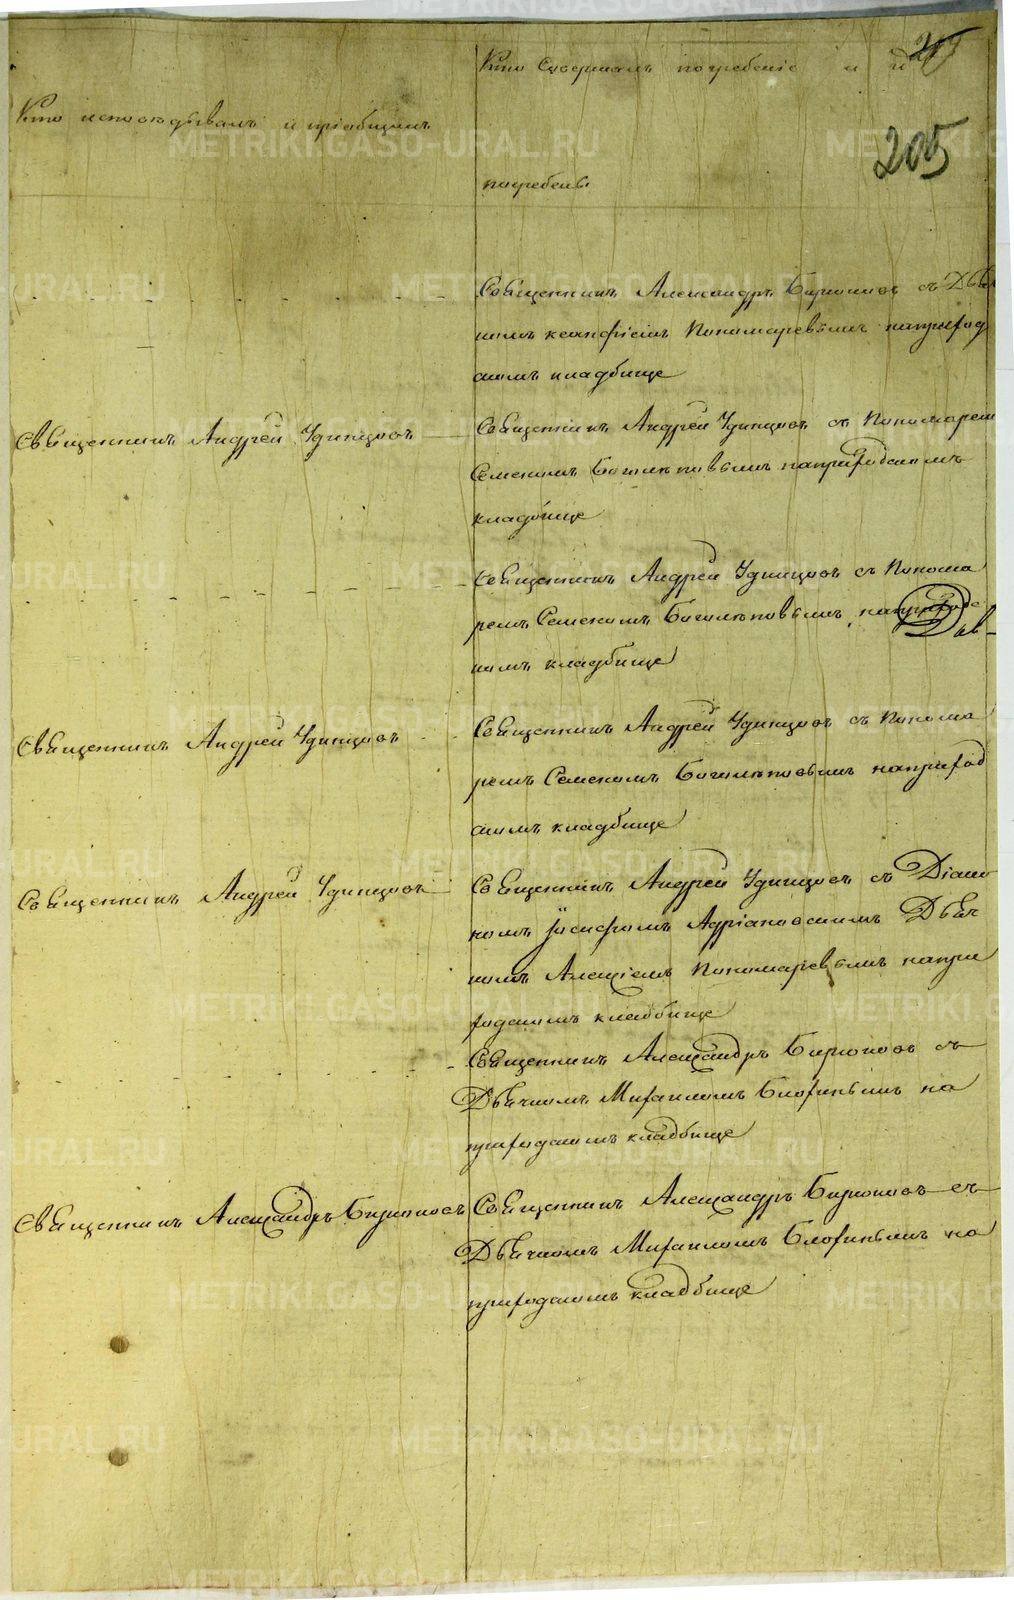 205
Кто исповѣдывалъ и пріобщалъ
Кто совершалъ погребеніе и
погребены
Священникъ Александръ Бирюковъ съ Дьяч
комъ Ксанфіемъ Пономаревымъ на приход
скомъ кладбище
Священникъ Андрей Удинцовъ
Священникъ Андрей Удинцовъ съ Пономаремъ
Семеномъ Боголѣповымъ на приходскомъ
кладбище
Священникъ Андрей Удинцовъ съ Понома
ремъ Семеномъ Боголѣповымъ,
номъ кладбище
Священникъ Андрей Удинцовъ
Священникъ Андрей Удинцовъ съ Понома
ремъ Семеномъ Боголѣповымъ на приход
скомъ кладбище
Священникъ Андрей Удинцовъ
Священникъ Андрей Удинцовъ съ Діако
номъ Іосифомъ Адріановскимъ Дьяч
комъ Алексіемъ Пономаревымъ на при
ходскомъ кладбище
Священникъ Александръ Бирюковъ съ
Дьячкомъ Михаиломъ Блохинымъ на
приходскомъ кладбище
Священникъ Александръ Бирюковъ
Священникъ Александръ Бирюковъ съ
Дьячкомъ Михаиломъ Блохинымъ на
приходскомъ кладбище